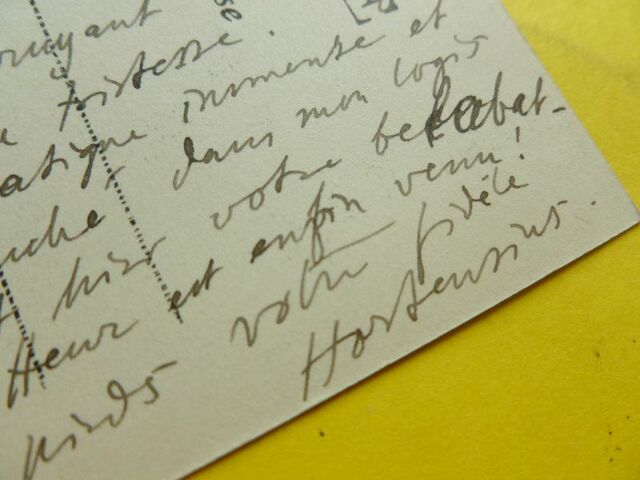 se
ruyant
tristesse.
atigue immense et
uché dans mon logis
hier votre bec labat-
Heur est enfin venu!
pieds votre fidèle
Hortensius.